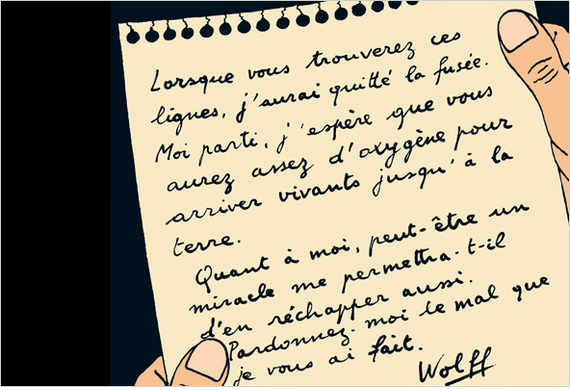 Lorsque vous trouverez ces
lignes, j'aurai quitté la fusée.
Moi parti, j'espère que vous
aurez assez d'oxygène pour
arriver vivants jusqu'à la
terre.
Quant à moi, peut-être un
miracle me permettra-t-il
d'en réchapper aussi.
Pardonnez-moi le mal que
je vous ai fait.
Wolff